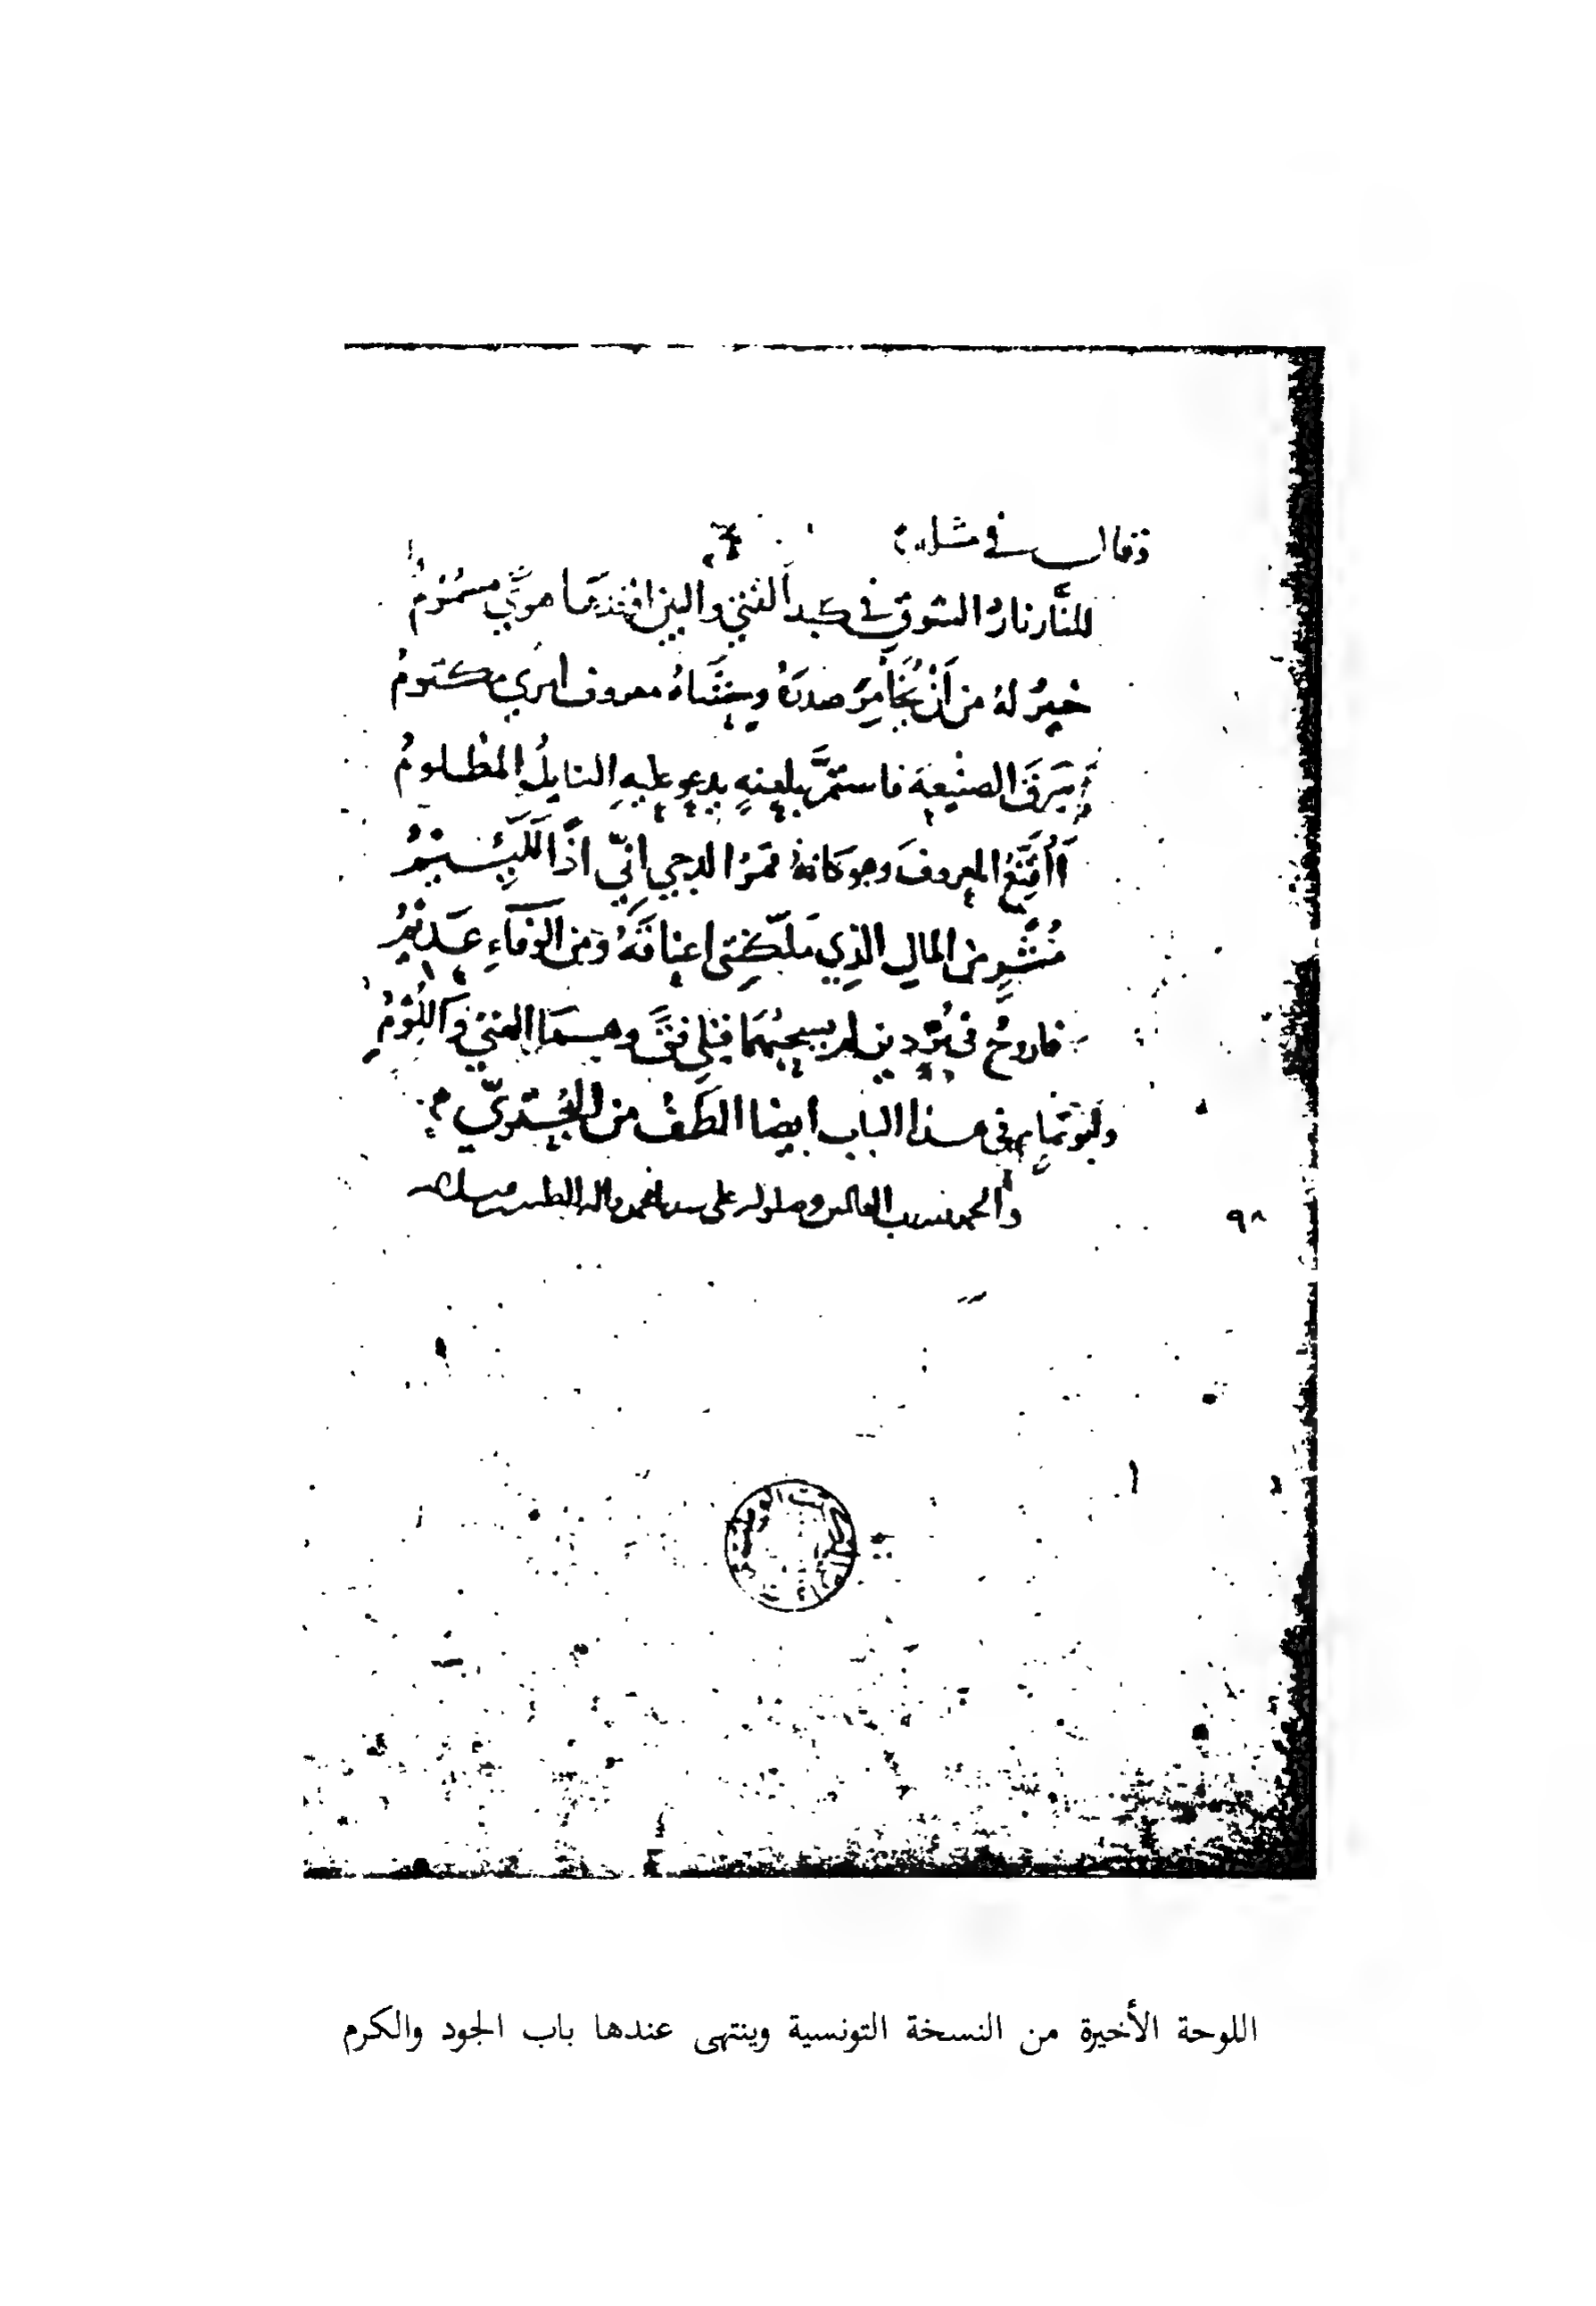 وقال في مثله
للنار نارُ الشوق في كبد الفتى والبين اقتدتها هوىً مسمُومُ
خيرٌ لهُ من أنْ يُخَامِرَ صدرَهُ وحَشَاهُ معروف امرئ مكتومُ
سَرَقَ الصنيعةَ فاستمرَّ بلعنةٍ يدعو عليهِ النايلُ المظلومُ
أأُقنِّعُ المعروفَ وهو كأنهُ قمرُ الدجى إنّي إذًا لَلَئيمُ
مُثرٍ من المالِ الذي ملّكتني اعناقَهُ ومن الوَفَاءِ عَديمُ
فاروحُ في بُرْدين لم يسحبهما قبلي فتًى وهما الغنى وَاللُّوْمُ
ولأبي تمام في هذا الباب ايضا الطَفُ من البُحتريّ
والحمد لله رب العالمين وصلواته على سيدنا محمد واله الطيبين
٩٨
اللوحة الأخيرة من النسخة التونسية وينتهى عندها باب الجود والكرم